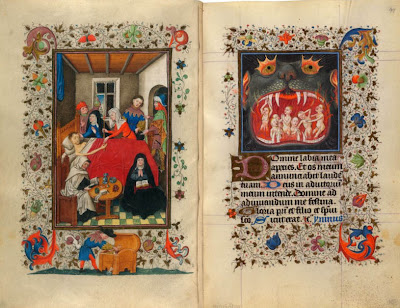 Domine labia mea
aperies. Et os meum
annunciabit laude
tuam. Deus in adiutoriu
meum intende. Domine ad
adiuuandum me festina.
Gloria pri et filio et spui
sco. Sicut erat.